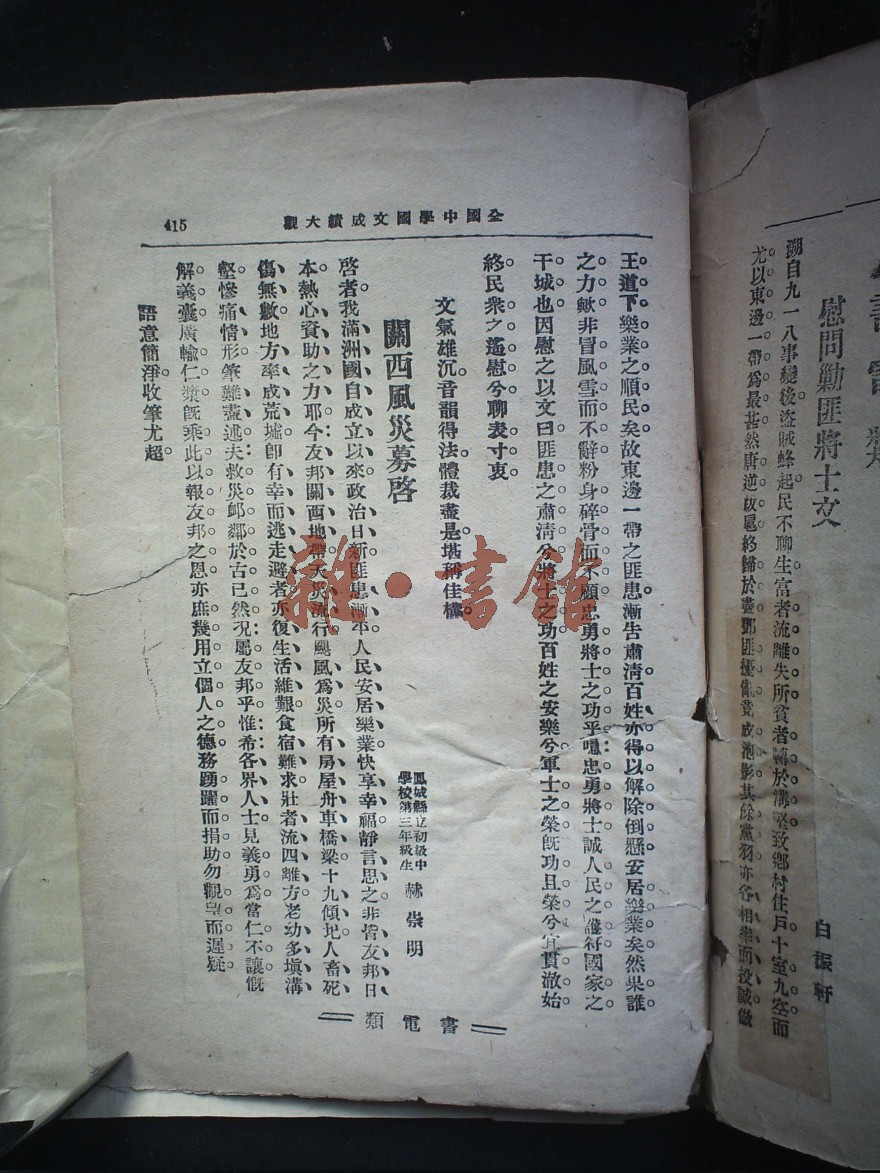 慰問勦匪將士文
白振軒
溯自九一八事變後盜賊蜂起民不聊生富者流離失所貧者轉於溝壑致鄉村住戶十室九空而
尤以東邊一帶爲最甚然唐逆故扈終歸於盡鄧匪擾亂竟成泡影其餘黨羽亦各相率而投誠做
全國中學國文成績大觀
415
王道下樂業之順民矣故東邊一帶之匪患漸告肅清百姓亦得以解除倒懸安居樂業矣然果誰
之力歟非冒風雪而不辭粉身碎骨而不顧忠勇將士之功乎噫忠勇將士誠人民之護符國家之
干城也因慰之以文曰匪患之肅清兮將士之功百姓之安樂兮軍士之榮旣功且榮兮宜貫澈始
終民衆之遙慰兮聊表寸衷
文氣雄沉音韻得法體裁盡是堪稱佳構
關西風災募啓
鳳城縣立初級中
學校第三年級生
赫崇明
啓者我滿洲國自成立以來政治日新匪患漸平人民安居樂業快享幸福靜言思之非皆友邦日
本熱心資助之力耶今友邦關西地帶天災流行颶風爲災所有房屋舟車橋梁十九傾圮人畜死
傷無數地方率成荒墟卽有幸而逃走避者亦復生活維艱食宿難求壯者流四離方老幼多塡溝
壑慘痛情形筆難盡述夫救災卹鄰於古已然況屬友邦乎惟希各界人士見義勇爲當仁不讓慨
解義囊廣輸仁漿旣乘此以報友邦之恩亦庶幾用立個人之德務踴躍而捐助勿觀望而遲疑
語意簡淨收筆尤超
書電類
雜·書館